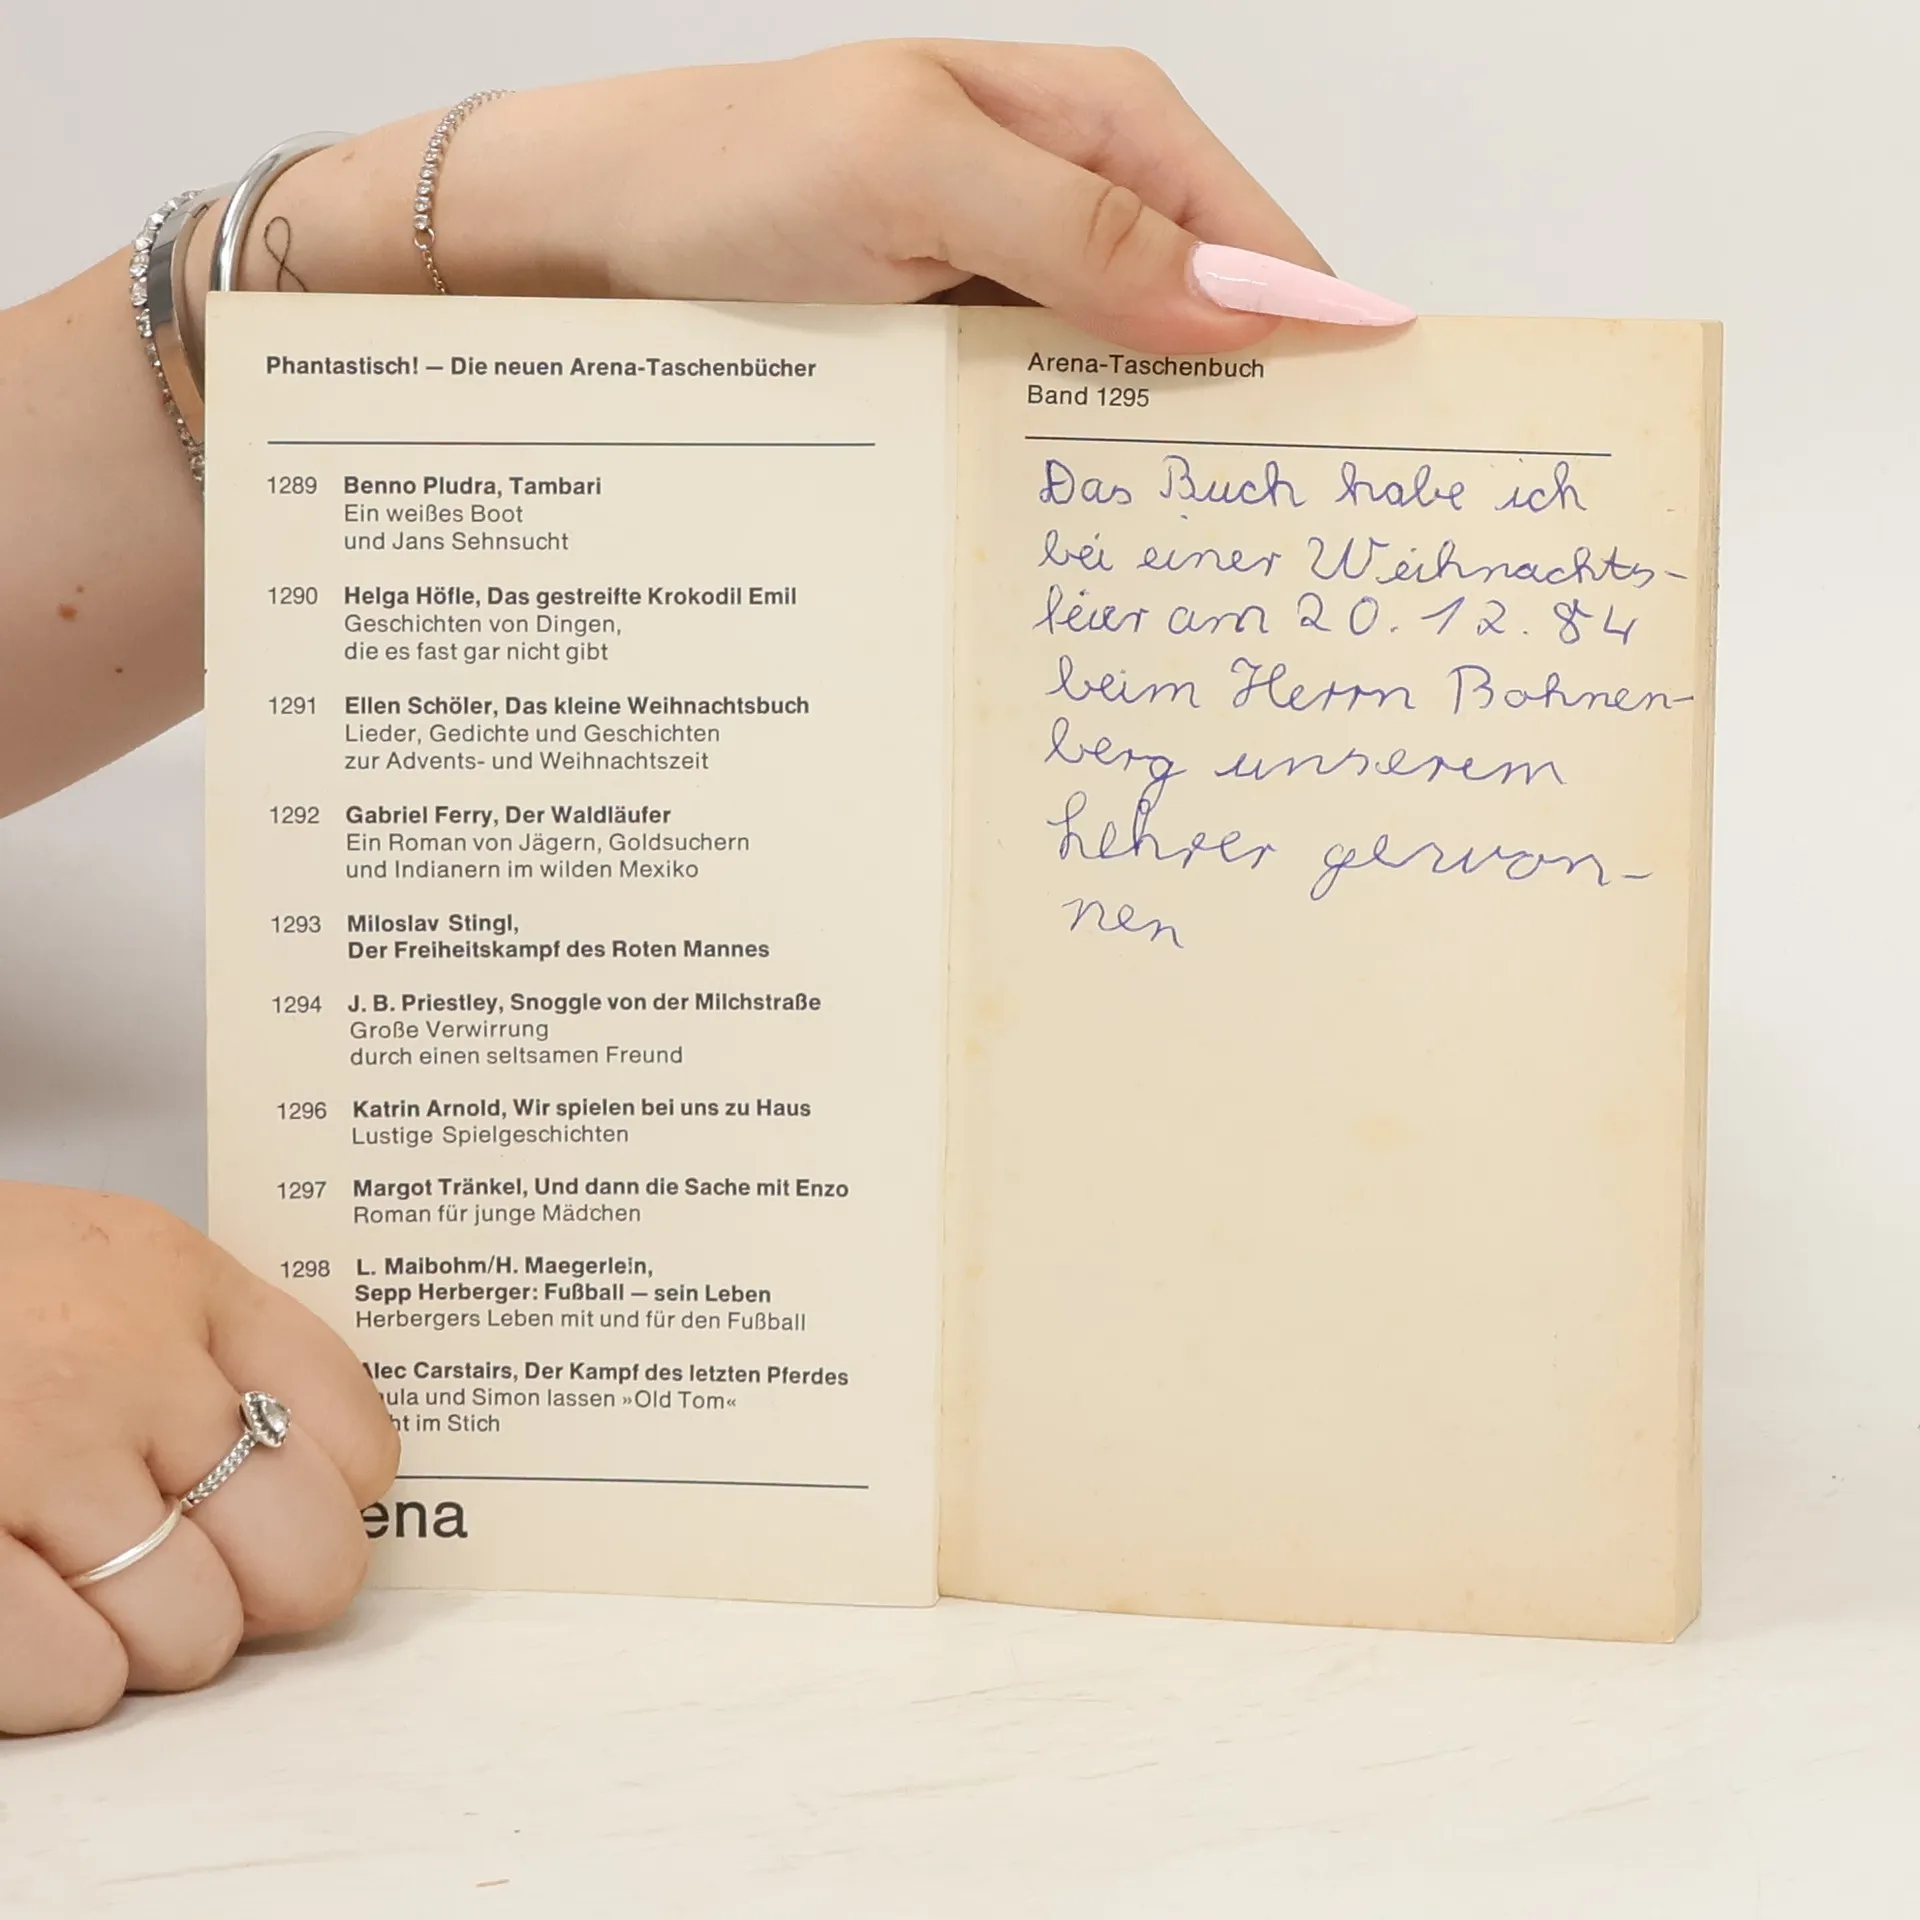 Phantastisch! — Die neuen Arena-Taschenbücher
1289 Benno Pludra, Tambari
Ein weißes Boot
und Jans Sehnsucht
1290 Helga Höfle, Das gestreifte Krokodil Emil
Geschichten von Dingen,
die es fast gar nicht gibt
1291 Ellen Schöler, Das kleine Weihnachtsbuch
Lieder, Gedichte und Geschichten
zur Advents- und Weihnachtszeit
1292 Gabriel Ferry, Der Waldläufer
Ein Roman von Jägern, Goldsuchern
und Indianern im wilden Mexiko
1293 Miloslav Stingl,
Der Freiheitskampf des Roten Mannes
1294 J. B. Priestley, Snoggle von der Milchstraße
Große Verwirrung
durch einen seltsamen Freund
1296 Katrin Arnold, Wir spielen bei uns zu Haus
Lustige Spielgeschichten
1297 Margot Tränkel, Und dann die Sache mit Enzo
Roman für junge Mädchen
1298 L. Maibohm/H. Maegerlein,
Sepp Herberger: Fußball — sein Leben
Herbergers Leben mit und für den Fußball
Alec Carstairs, Der Kampf des letzten Pferdes
ula und Simon lassen »Old Tom«
ht im Stich
ena
Arena-Taschenbuch
Band 1295
Das Buch habe ich
bei einer Weihnachts-
feier am 20. 12. 84
beim Herrn Bohnen-
berg unserem
Lehrer gewon-
nen